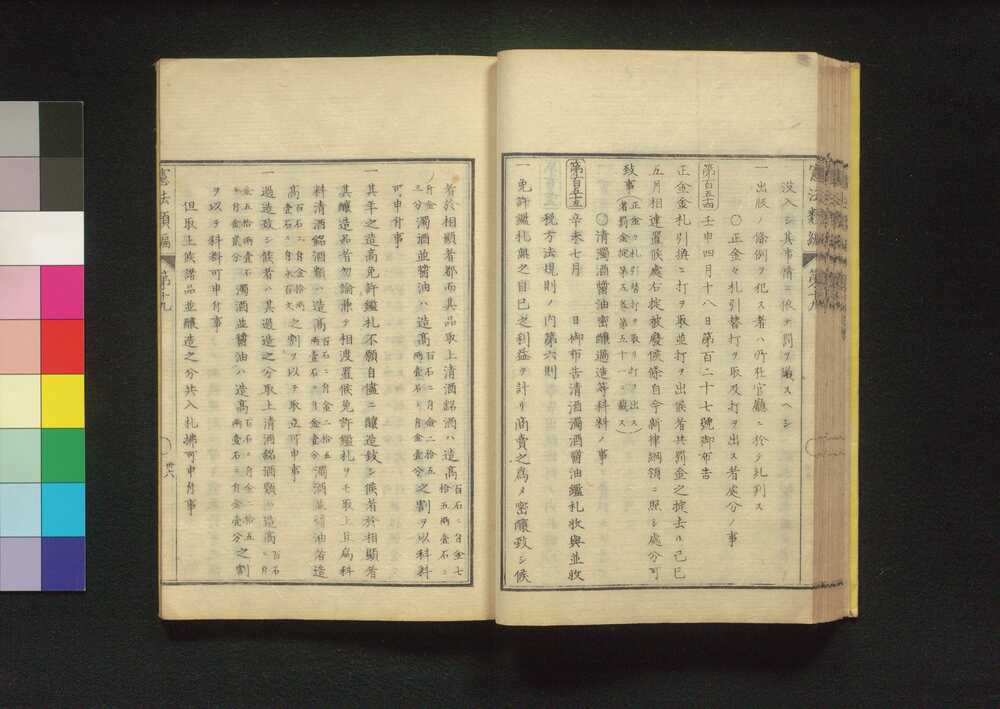 没入シ其事情ニ依テ罰ヲ議スヘシ
一 出版ノ條例ヲ犯ス者ハ乃在官廳ニ於テ糺判ス
〇正金々札引替打ヲ取及打ヲ出ス者處分ノ事
第百五十四 壬申四月十八日第百二十七號御布告
正金金札引換ニ打ヲ取並打ヲ出候者共罰金之掟去ル己巳
五月相達置候處右掟被廢候條自今新律綱領ニ照シ處分可
致事(正金々札引替打ヲ取リ打ヲ出ス者罰金掟第五巻第五十一ニ載ス)
〇清濁酒醬油密釀過造等科料ノ事
第百五十五 辛未七月 日御布告清酒濁酒醬油鑑札收與並收
税方法規則ノ内第六則
一 免許鑑札無之自己之利益ヲ計リ商賣之爲メ密釀致シ候
者於相顯者都而其品取上清酒銘酒ハ造高百石ニ付金二拾五
拾五兩壹石ニ付金七
三分濁酒並醬油ハ造高之割ヲ以科料
可申付事
一 其年之造高免許鑑札不願自儘ニ釀造致シ候者於相顯者
其釀造品者勿論兼テ相渡置候免許鑑札ヲモ取上且爲科
料清酒銘酒類ハ造高濁酒並醬油者造
高之割ヲ以テ取立可申事
一 過造致シ候者ハ其過造之分取上清酒銘酒類ハ造高
濁酒並醬油ハ造高之割
ヲ以テ科料可申付事
但取上候諸品並釀造之分共入札拂可申付事
憲法類編 第十九
卅六